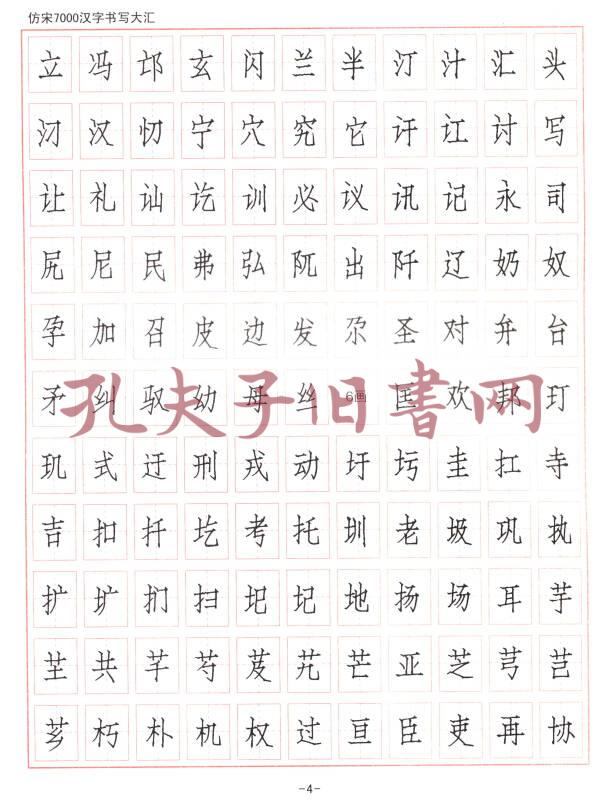 仿宋7000汉字书写大汇
立 冯 邙 玄 闪 兰 半 汀 汁 汇 头
汈 汉 忉 宁 穴 究 它 讦 讧 讨 写
让 礼 讪 讫 训 必 议 讯 记 永 司
尻 尼 民 弗 弘 阢 出 阡 辽 奶 奴
孕 加 召 皮 边 发 尕 圣 对 弁 台
矛 纠 驭 幼 母 丝 6画 匡 欢 邦 玎
孔夫子旧書网
玑 式 迂 刑 戎 动 圩 圬 圭 扛 寺
吉 扣 扦 圪 考 托 圳 老 圾 巩 执
扩 圹 扪 扫 圯 圮 地 扬 场 耳 芋
芏 共 芊 芍 芨 艽 芒 亚 芝 芎 芑
芗 朽 朴 机 权 过 亘 臣 吏 再 协
-4-